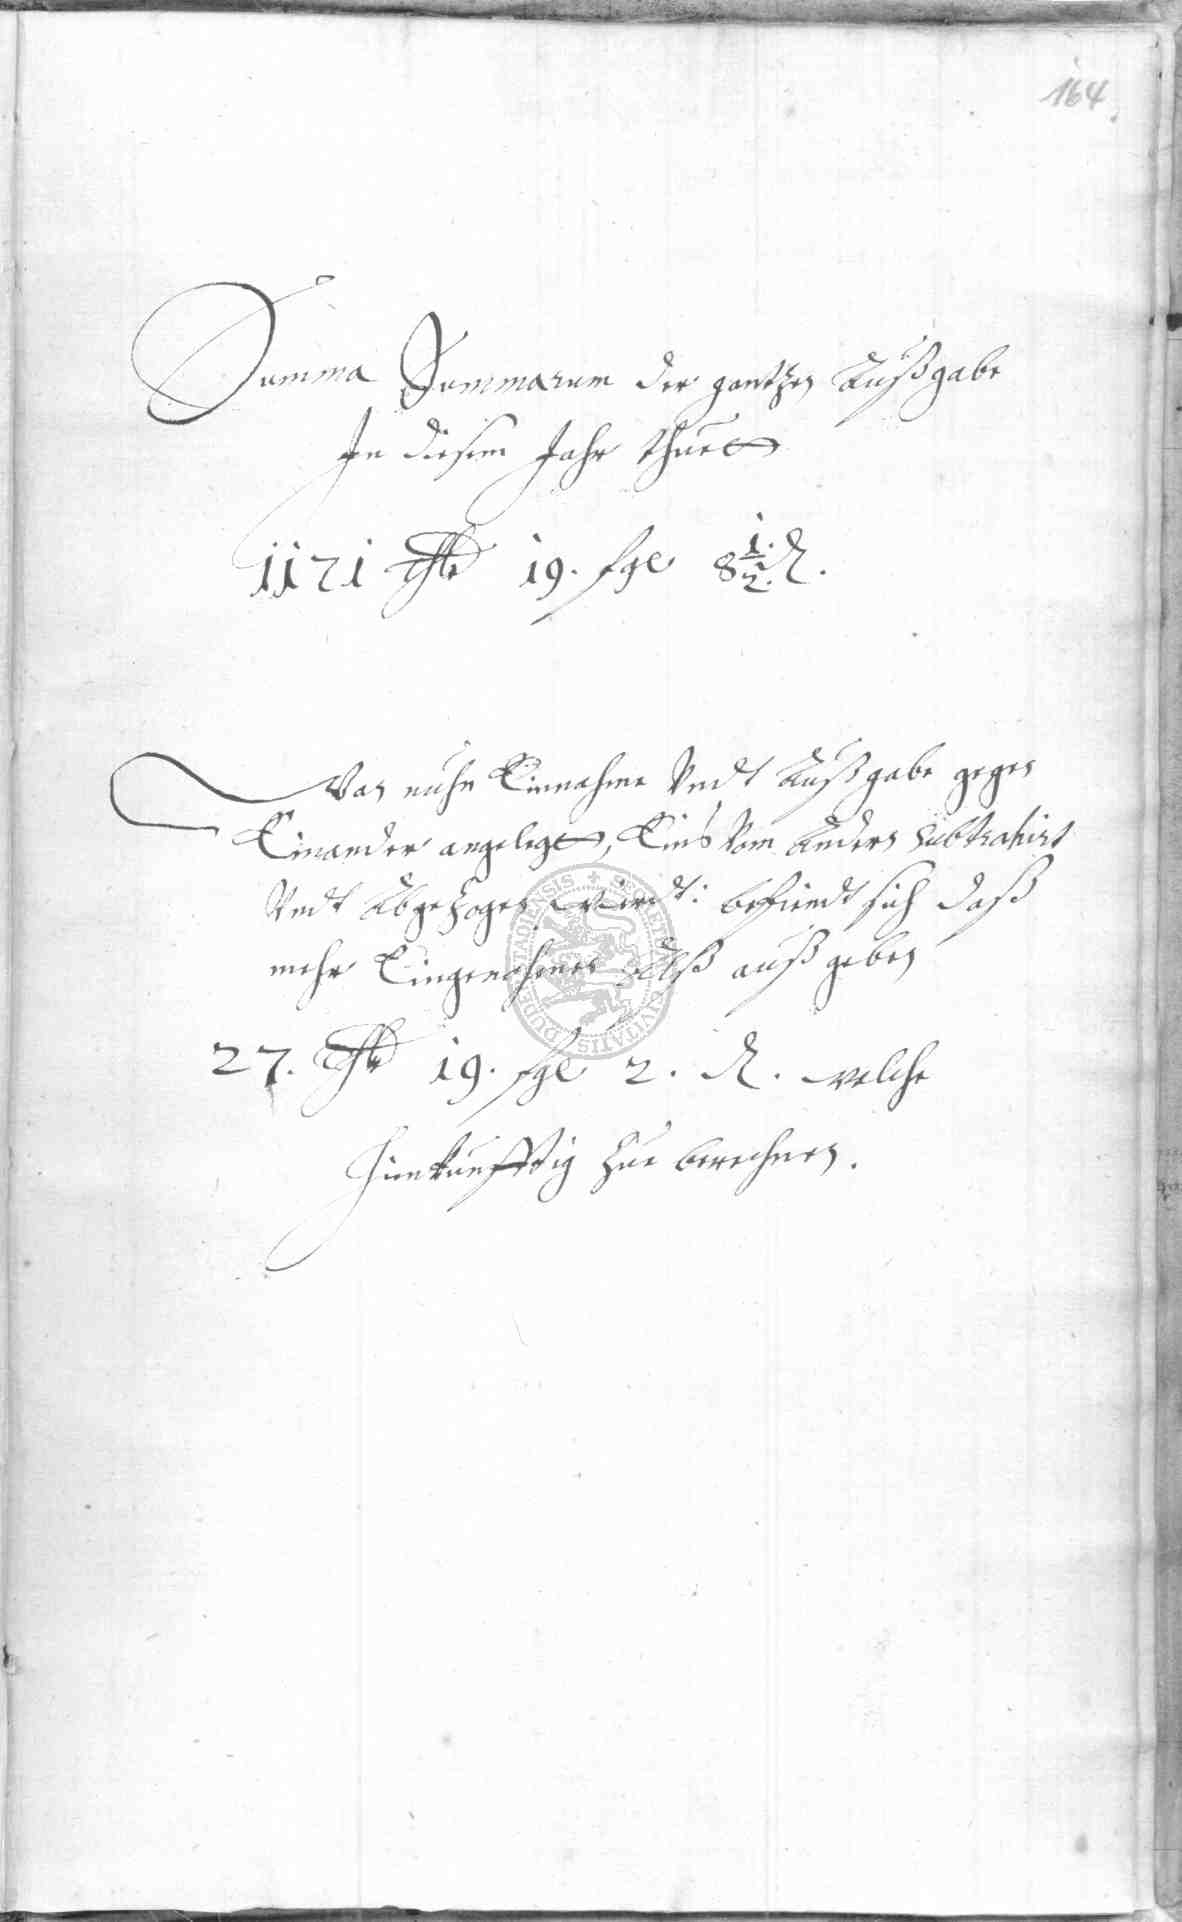 164
Summa Summarum der gantzen Außgabe
In diesem Jahr thuet
1171 Thlr 19. sgl 8 1/2 ₰.
Wan nuhn Einnahme Vndt Außgabe gegen
Einander angelegt, Eins Vom Andern subtrahirt
Vndt Abgezogen wirdt: befindt sich daß
mehr Eingenohmen Alß außgeben
27. Thlr 19. sgl 2. ₰. welche
hinkunfftig zue berechnen.
SECRETUM CIVITATIS DUDERSTADIENSIS